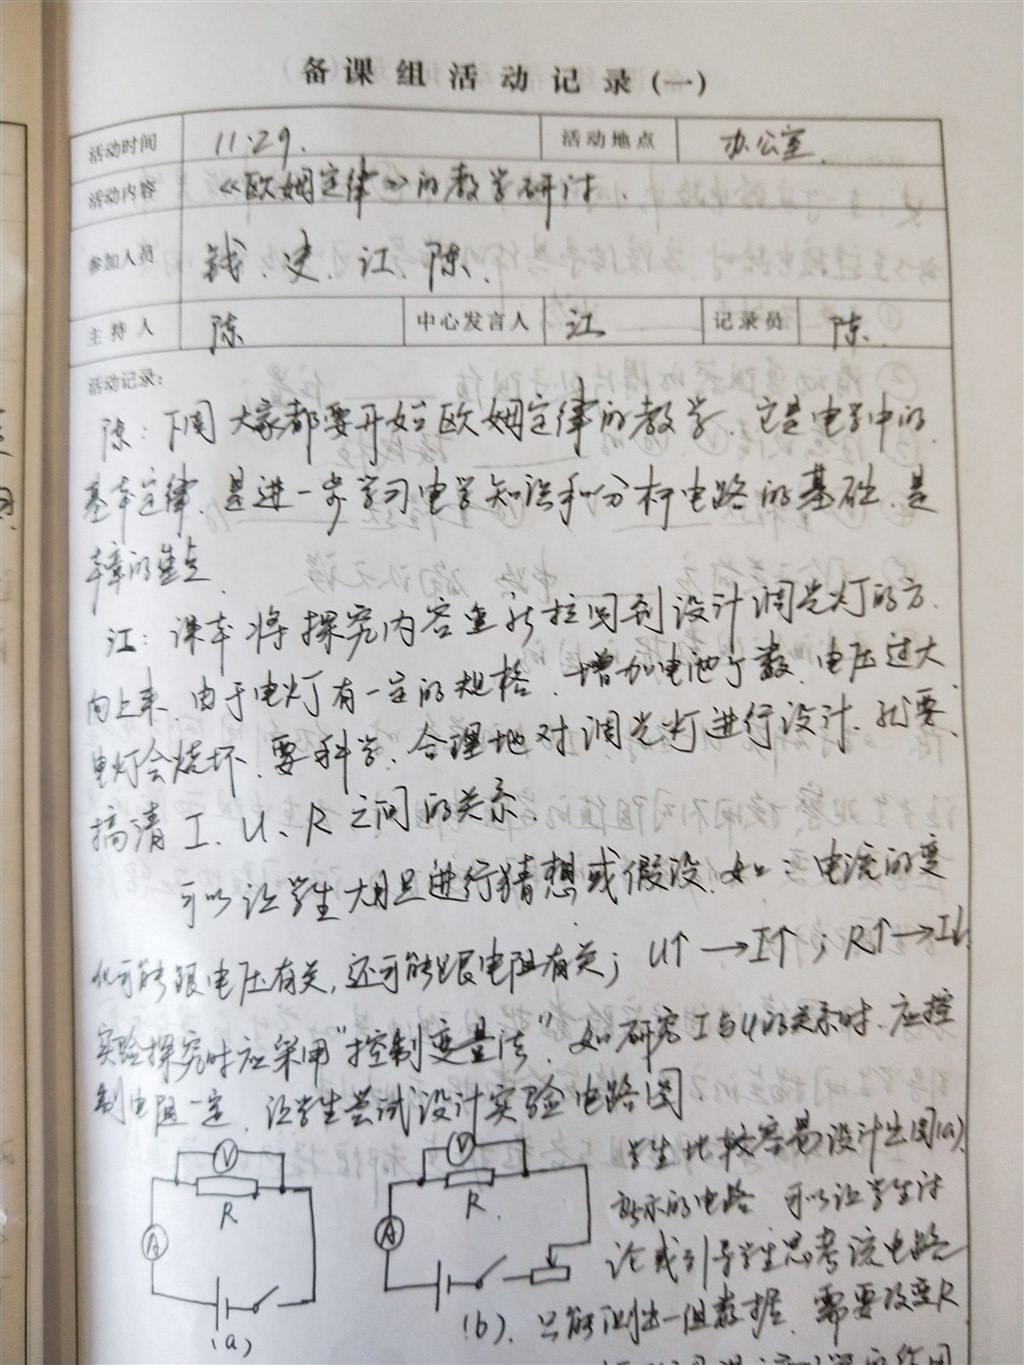 备课组活动记录(一)
活动时间 11.29. 活动地点 办公室.
活动内容 《欧姆定律》的教学研讨.
参加人员 钱、史、江、陈.
主持人 陈 中心发言人 江 记录员 陈.
活动记录:
陈: 下周大家都要开始欧姆定律的教学. 它是电学中的
基本定律, 是进一步学习电学知识和分析电路的基础, 是
本章的重点
江: 课本将探究内容重新拉回到设计调光灯的方
向上来. 由于电灯有一定的规格. 增加电池个数, 电压过大
电灯会烧坏, 要科学, 合理地对调光灯进行设计. 就要
搞清 I、U、R 之间的关系.
可以让学生大胆进行猜想或假设. 如: 电流的变
化可能跟电压有关, 还可能跟电阻有关; U↑→I↑; R↑→I↓
实验探究时应采用“控制变量法”. 如研究I与U的关系时. 应控
制电阻一定. 让学生尝试设计实验电路图.
V R A (a)
V R. A (b).
学生比较容易设计出图(a)
所示的电路 可以让学生讨
论或引导学生思考该电路
只能测出一组数据. 需要改变R